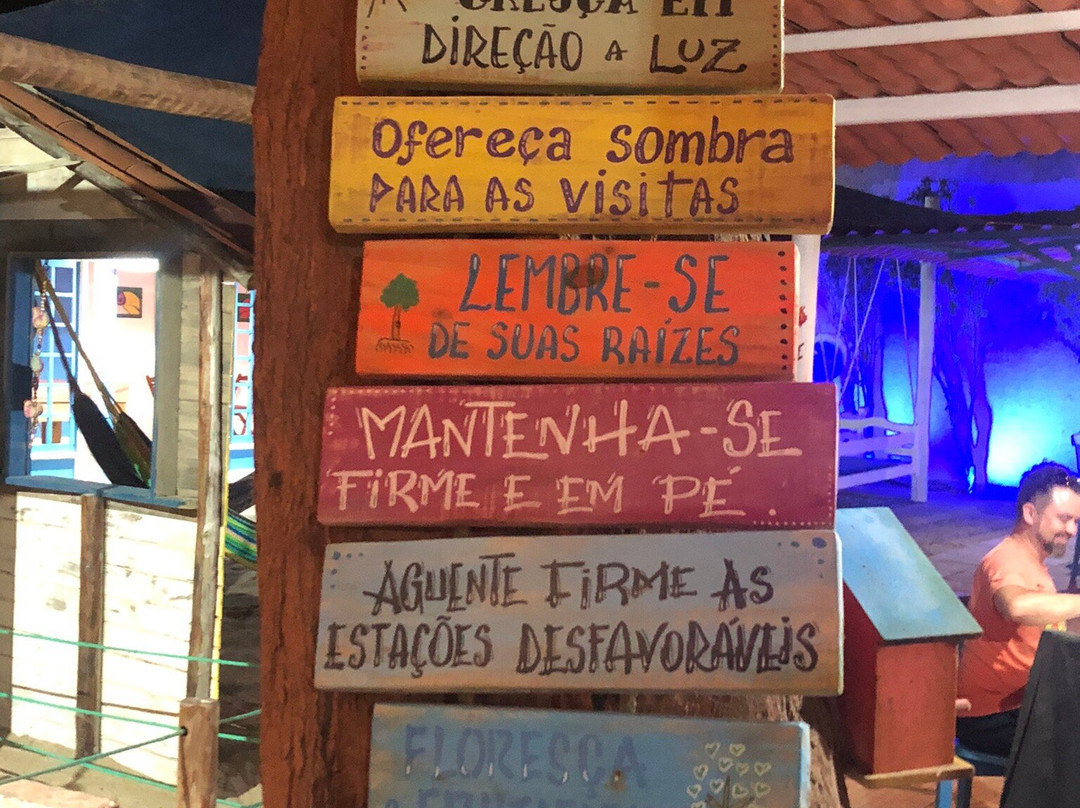 CRESÇA EM
DIREÇÃO A LUZ
Ofereça sombra
PARA AS VISITAS
LEMBRE-SE
DE SUAS RAÍZES
MANTENHA-SE
FIRME E EM PÉ.
AGUENTE FIRME AS
ESTAÇÕES DESFAVORÁVEIS
FLORESÇA